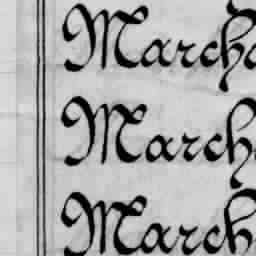 Marcha
March
March